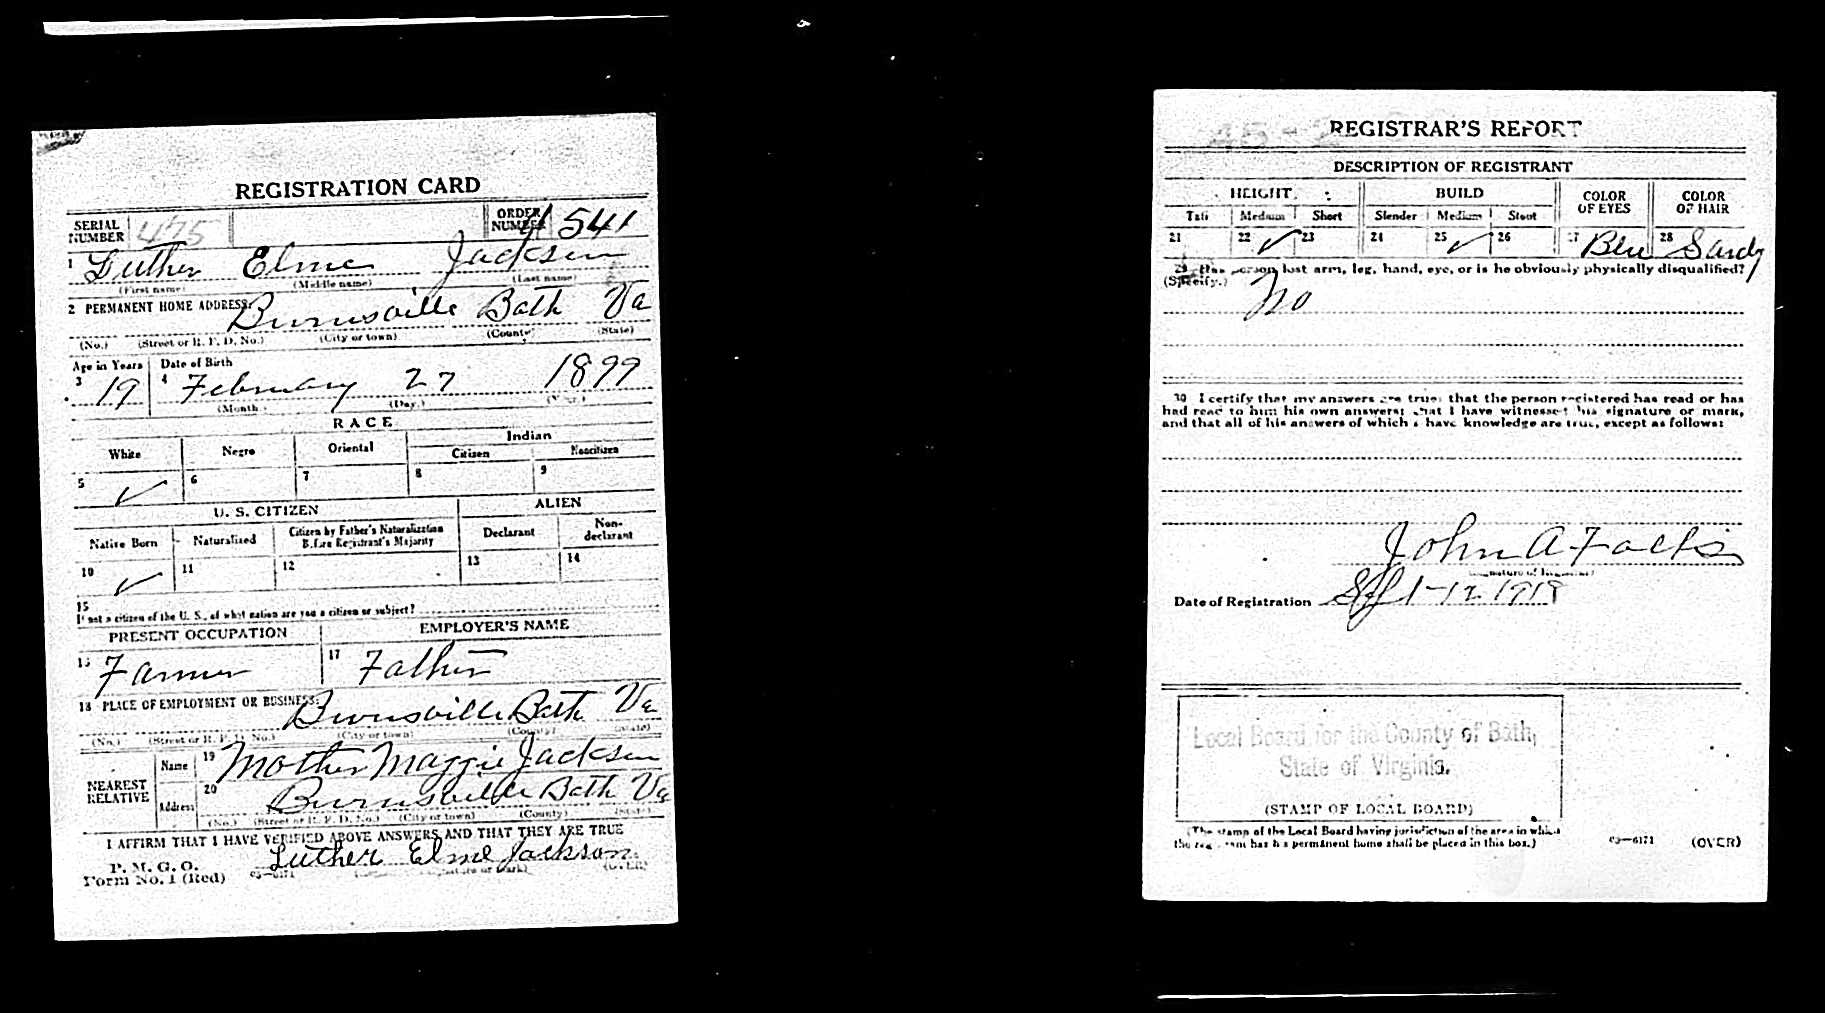 REGISTRATION CARD
SERIAL NUMBER 475 ORDER NUMBER 541
1 Luther Elme Jackson
(First name) (Middle name) (Last name)
2 PERMANENT HOME ADDRESS: Burnsville Bath Va
(No.) (Street or R. F. D. No.) (City or town) (County) (State)
Age in Years Date of Birth
3 19 4 February 27 1899
(Month.) (Day.) (Year.)
RACE
White Negro Oriental Indian
Citizen Noncitizen
5 ✓ 6 7 8 9
U. S. CITIZEN ALIEN
Native Born Naturalized Citizen by Father's Naturalization Before Registrant's Majority Declarant Non-declarant
10 ✓ 11 12 13 14
15
If not a citizen of the U. S., of what nation are you a citizen or subject?
PRESENT OCCUPATION EMPLOYER'S NAME
16 Farmer 17 Father
18 PLACE OF EMPLOYMENT OR BUSINESS: Burnsville Bath Va
(No.) (Street or R. F. D. No.) (City or town) (County) (State)
NEAREST RELATIVE Name 19 Mother Maggie Jackson
Address 20 Burnsville Bath Va
(No.) (Street or R. F. D. No.) (City or town) (County) (State)
I AFFIRM THAT I HAVE VERIFIED ABOVE ANSWERS AND THAT THEY ARE TRUE
P. M. G. O.
Form No. 1 (Red) 03—6171 Luther Elme Jackson
(Signature or mark) (OVER)
REGISTRAR'S REPORT
DESCRIPTION OF REGISTRANT
HEIGHT BUILD COLOR OF EYES COLOR OF HAIR
Tall Medium Short Slender Medium Stout
21 22 ✓ 23 24 25 ✓ 26 27 Blue 28 Sandy
29 Has person lost arm, leg, hand, eye, or is he obviously physically disqualified?
(Specify.) No
30 I certify that my answers are true; that the person registered has read or has
had read to him his own answers; that I have witnessed his signature or mark,
and that all of his answers of which I have knowledge are true, except as follows:
John A
(Signature of Registrar)
Date of Registration Sept-12 1918
Local Board for the County of Bath,
State of Virginia.
(STAMP OF LOCAL BOARD)
(The stamp of the Local Board having jurisdiction of the area in which
the registrant has his permanent home shall be placed in this box.)
03—6171 (OVER)